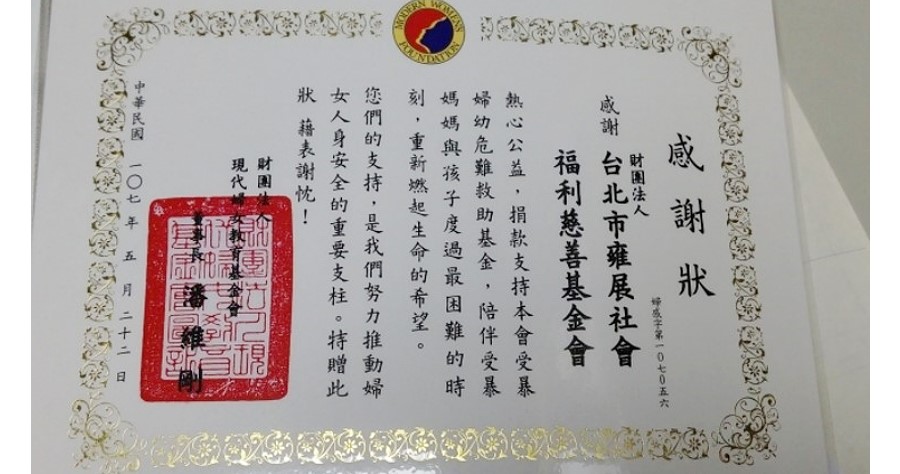 MODERN WOMEN'S FOUNDATION
感謝狀
婦感字第一〇七〇五六
感謝 財團法人 台北市雍展社會
福利慈善基金會
熱心公益，捐款支持本會受暴
婦幼危難救助基金，陪伴受暴
媽媽與孩子度過最困難的時
刻，重新燃起生命的希望。
您們的支持，是我們努力推動婦
女人身安全的重要支柱。特贈此
狀 藉表謝忱！
財團法人
現代婦女教育基金會
董事長 潘維剛
中華民國 一〇七年 五月二十二日